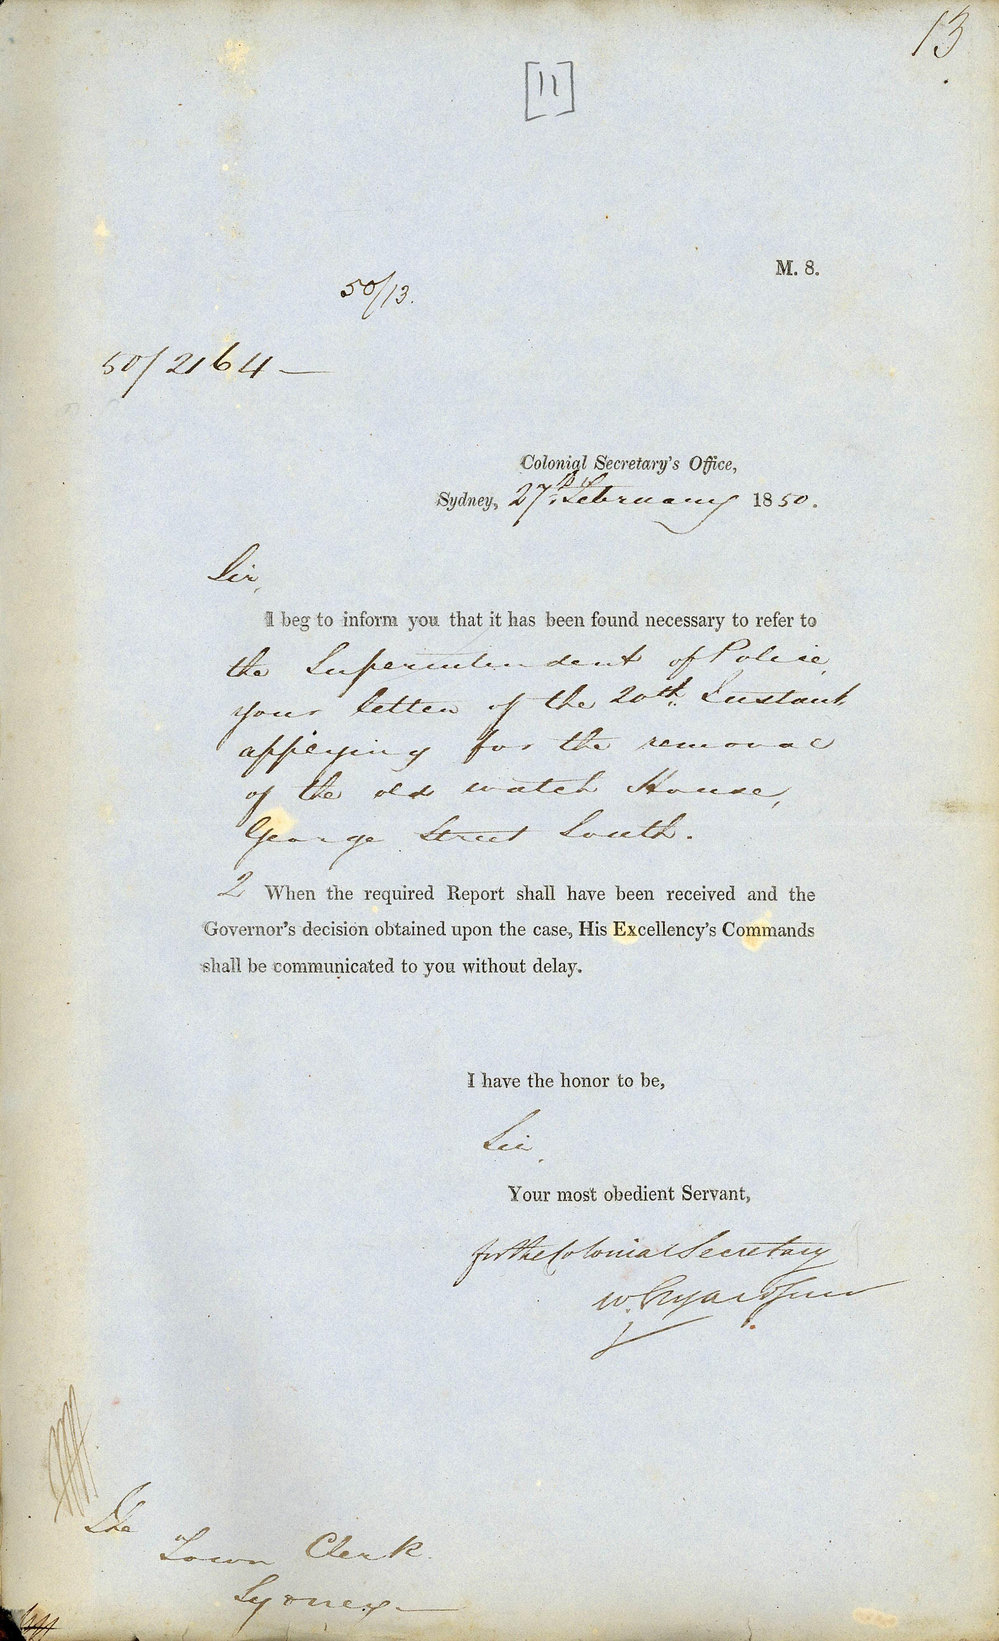 13
[11]
M. 8.
50/13.
50/2164 —
Colonial Secretary's Office,
Sydney, 27th February 1850.
Sir,
I beg to inform you that it has been found necessary to refer to
the Superintendent of Police,
your letter of the 20th Instant
applying for the removal
of the old watch House,
George Street South.
2 When the required Report shall have been received and the
Governor's decision obtained upon the case, His Excellency's Commands
shall be communicated to you without delay.
I have the honor to be,
Sir,
Your most obedient Servant,
for the Colonial Secretary
W.
The
Town Clerk.
Sydney —